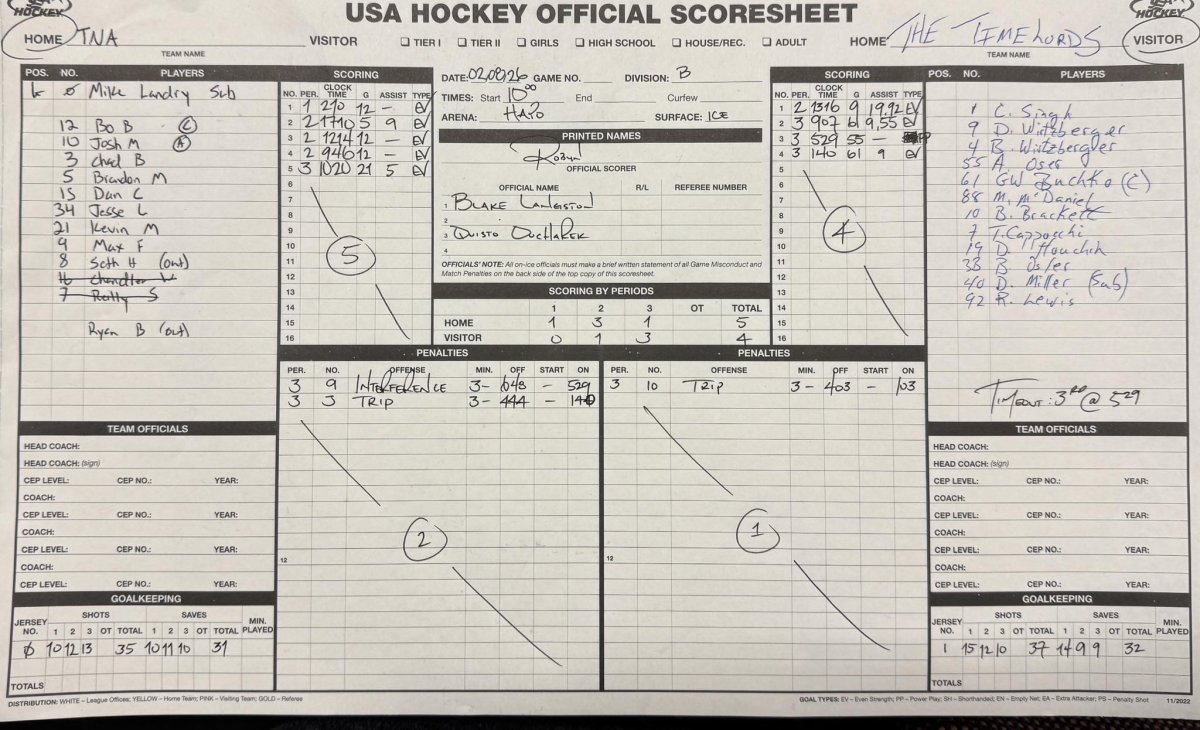 USA HOCKEY OFFICIAL SCORESHEET
HOCKEY
HOCKEY
HOME TNA VISITOR ☐ TIER I ☐ TIER II ☐ GIRLS ☐ HIGH SCHOOL ☐ HOUSE/REC. ☐ ADULT HOME THE TIMELORDS VISITOR
TEAM NAME
TEAM NAME
POS. NO. PLAYERS
G 0 Mike Landry Sub
12 Bo B (C)
10 Josh M (A)
3 Chad B
5 Brandon M
15 Dan C
34 Jesse L
21 Kevin M
9 Max F
8 Seth H (out)
16 Chandler V
7 Reilly S
Ryan B (out)
SCORING
NO. PER. CLOCK TIME G ASSIST TYPE
1 1 210 12 – EV
2 2 1710 5 9 EV
3 2 1214 12 – EV
4 2 946 12 – EV
5 3 1020 21 5 EV
6
7
8
9
10
11
12
13
14
15
16
5
DATE: 020826 GAME NO. DIVISION: B
TIMES: Start 10 00 End Curfew
ARENA: HAPO SURFACE: ICE
PRINTED NAMES
Robyn
OFFICIAL SCORER
OFFICIAL NAME R/L REFEREE NUMBER
1 BLAKE LANGSTON
2
3 QUISTO OUCHAREK
4
OFFICIALS' NOTE: All on-ice officials must make a brief written statement of all Game Misconduct and
Match Penalties on the back side of the top copy of this scoresheet.
SCORING BY PERIODS
1 2 3 OT TOTAL
HOME 1 3 1 5
VISITOR 0 1 3 4
SCORING
NO. PER. CLOCK TIME G ASSIST TYPE
1 2 1316 9 19,92 EV
2 3 907 61 9,55 EV
3 3 529 55 – PP
4 3 140 61 9 EV
5
6
7
8
9
10
11
12
13
14
15
16
4
POS. NO. PLAYERS
1 C. Singh
9 D. Wirtzberger
4 B. Wirtzbergler
55 A. Oser
61 GW Buchko (C)
88 M. McDaniel
10 B. Brackett
7 T. Capposchi
19 D. Houchin
33 B. Osler
40 D. Miller (Sub)
92 R. Lewis
TIMEOUT: 3RD @ 529
PENALTIES
PER. NO. OFFENSE MIN. OFF START ON
3 9 INTERFERENCE 3- 648 – 529
3 3 TRIP 3- 444 – 140
12
2
PENALTIES
PER. NO. OFFENSE MIN. OFF START ON
3 10 TRIP 3- 403 – 103
12
1
TEAM OFFICIALS
HEAD COACH:
HEAD COACH: (sign)
CEP LEVEL: CEP NO.: YEAR:
COACH:
CEP LEVEL: CEP NO.: YEAR:
COACH:
CEP LEVEL: CEP NO.: YEAR:
COACH:
CEP LEVEL: CEP NO.: YEAR:
GOALKEEPING
SHOTS SAVES
JERSEY NO. 1 2 3 OT TOTAL 1 2 3 OT TOTAL MIN. PLAYED
0 10 12 13 35 10 11 10 31
TOTALS
TEAM OFFICIALS
HEAD COACH:
HEAD COACH: (sign)
CEP LEVEL: CEP NO.: YEAR:
COACH:
CEP LEVEL: CEP NO.: YEAR:
COACH:
CEP LEVEL: CEP NO.: YEAR:
COACH:
CEP LEVEL: CEP NO.: YEAR:
GOALKEEPING
SHOTS SAVES
JERSEY NO. 1 2 3 OT TOTAL 1 2 3 OT TOTAL MIN. PLAYED
1 15 12 10 37 14 9 9 32
TOTALS
DISTRIBUTION: WHITE – League Offices; YELLOW – Home Team; PINK – Visiting Team; GOLD – Referee
GOAL TYPES: EV – Even Strength; PP – Power Play; SH – Shorthanded; EN – Empty Net; EA – Extra Attacker; PS – Penalty Shot 11/2022